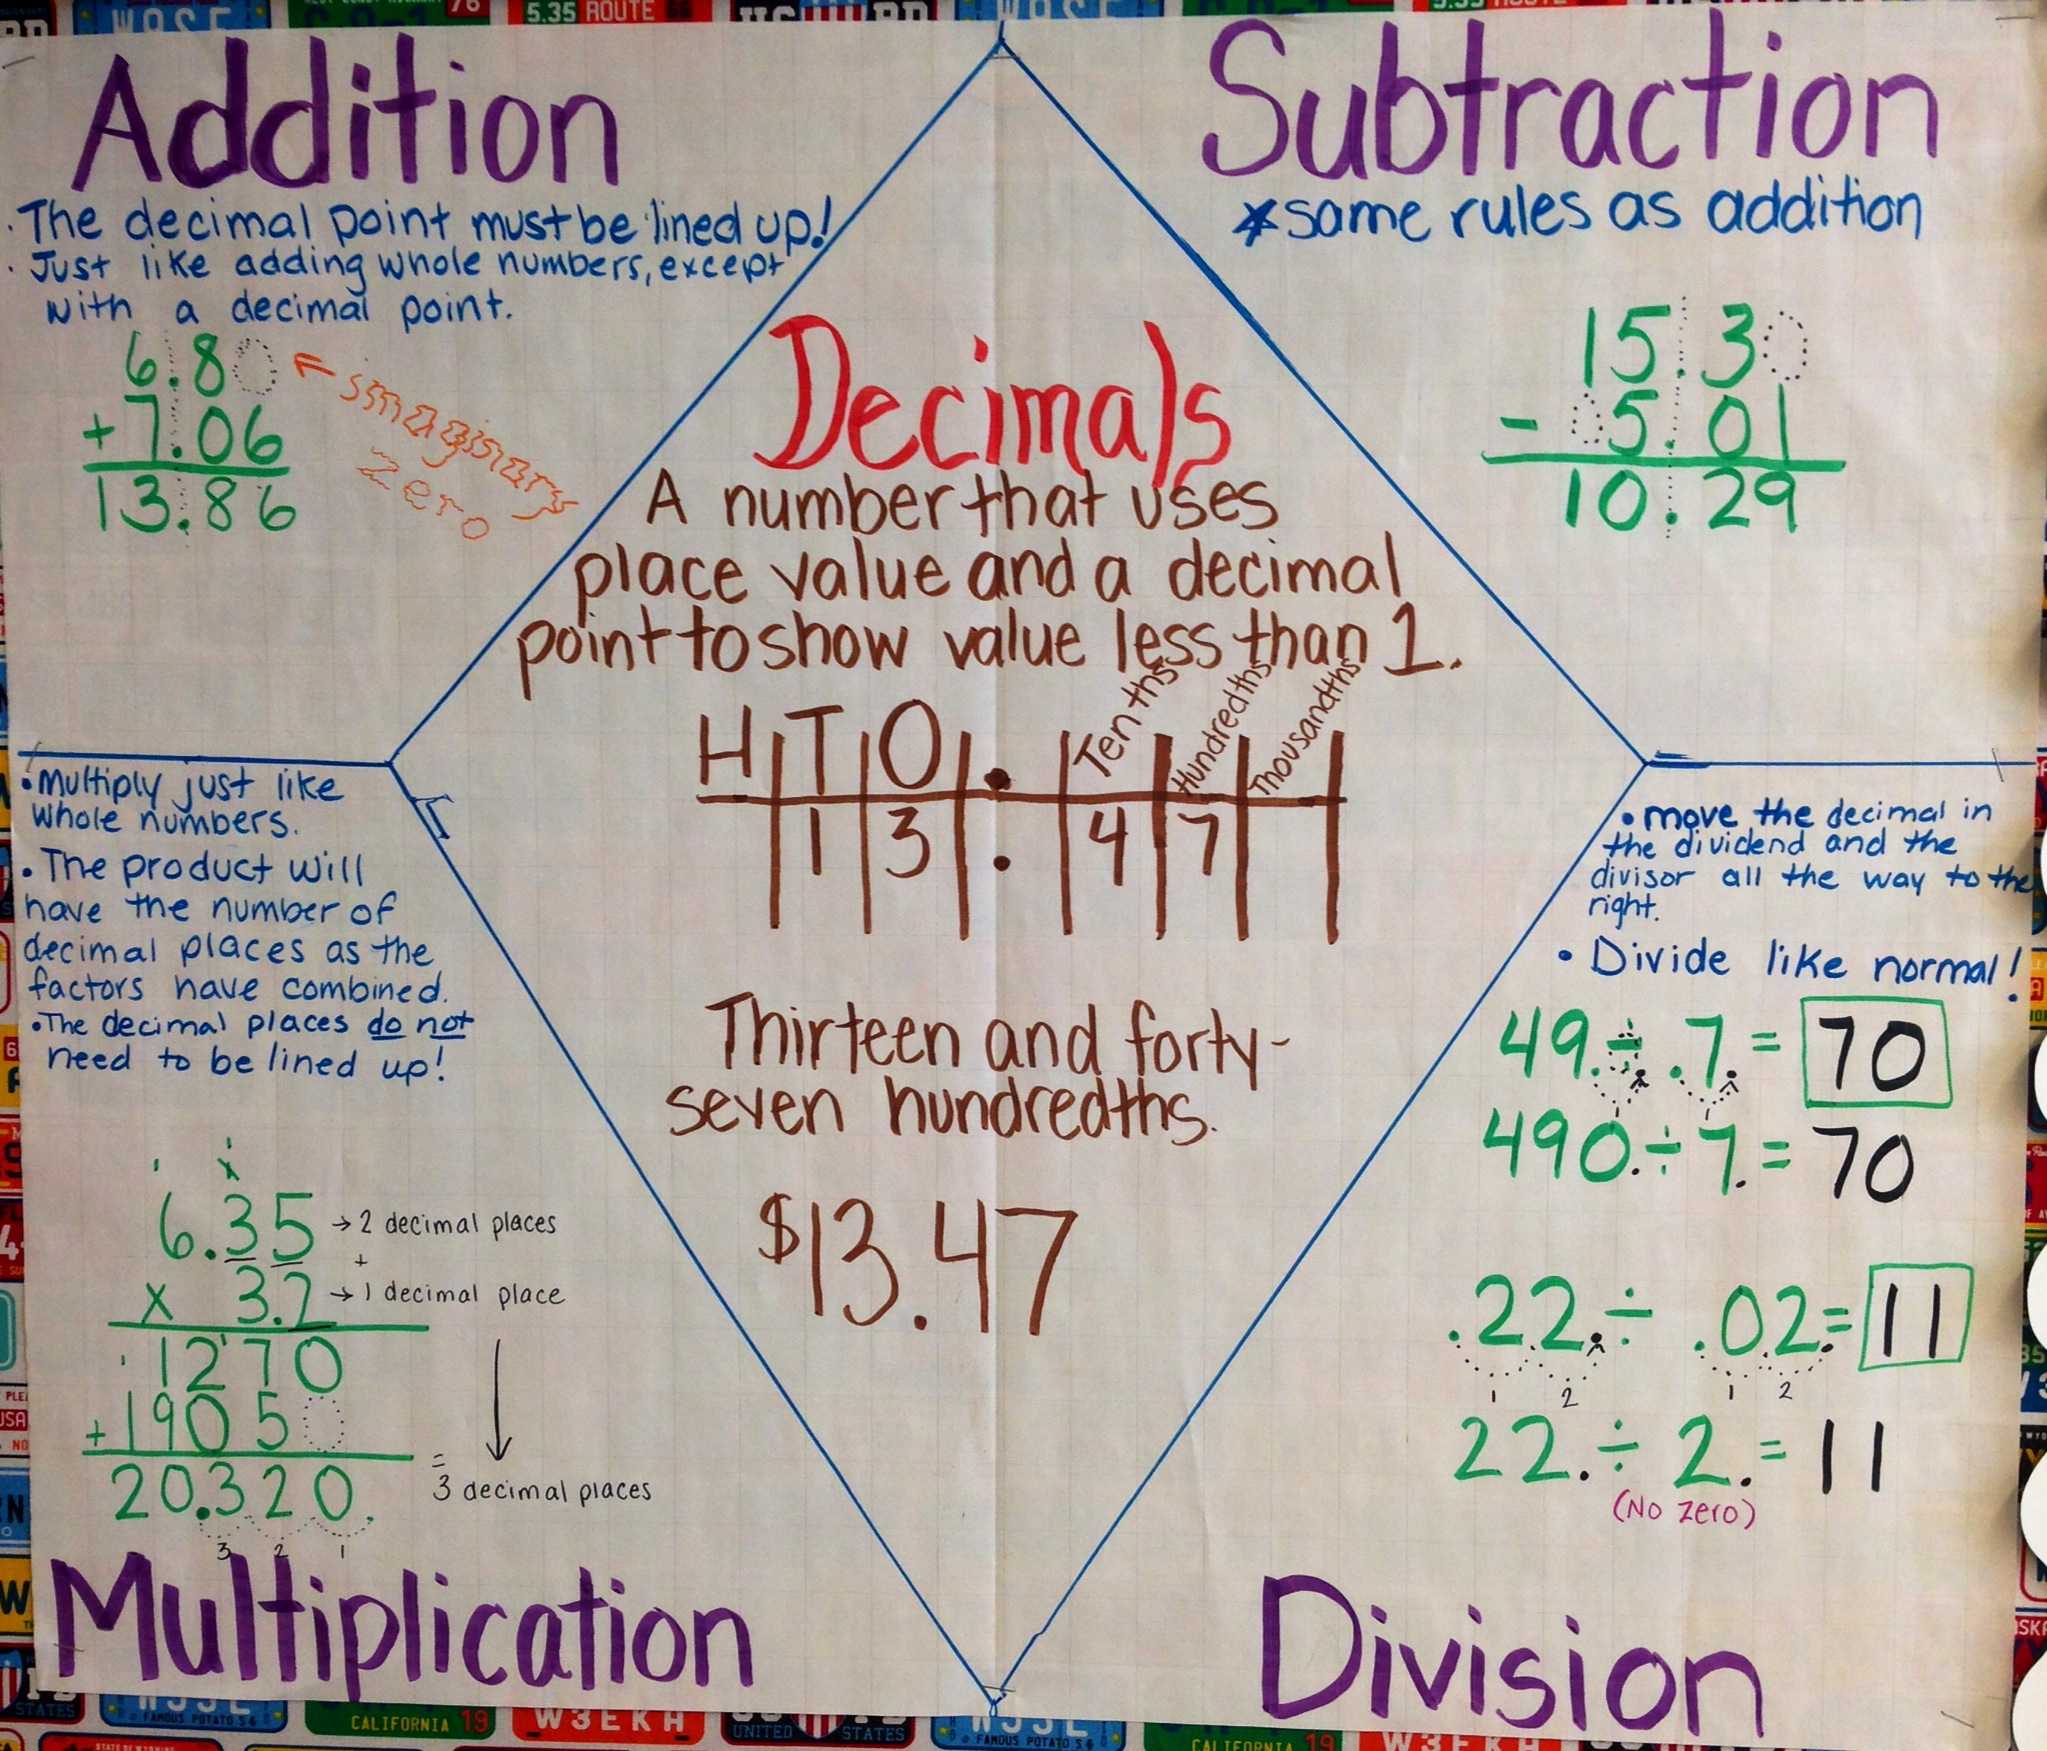 Addition
· The decimal point must be lined up!
· Just like adding whole numbers, except
with a decimal point.
6.80
+ 7.06
13.86
← imaginary
zero
Subtraction
* same rules as addition
15.30
- 05.01
10.29
Decimals
A number that uses
place value and a decimal
point to show value less than 1.
H T O . Tenths Hundredths Thousandths
1 3 . 4 7
Thirteen and forty-
seven hundredths.
$13.47
• Multiply just like
whole numbers.
• The product will
have the number of
decimal places as the
factors have combined.
• The decimal places do not
need to be lined up!
6.35 → 2 decimal places
+
x 3.2 → 1 decimal place
1270
+ 19050
=
20.320. 3 decimal places
3 2 1
Multiplication
• move the decimal in
the dividend and the
divisor all the way to the
right.
• Divide like normal!
49. ÷ .7. = 70
1 1
490. ÷ 7. = 70
.22. ÷ .02. = 11
1 2 1 2
22. ÷ 2. = 11
(No zero)
Division
5.35 ROUTE 66
STATES
FAMOUS POTATOES
CALIFORNIA 19
W3EKH
UNITED STATES
FAMOUS POTATOES
CALIFORNIA 19
W3EKH